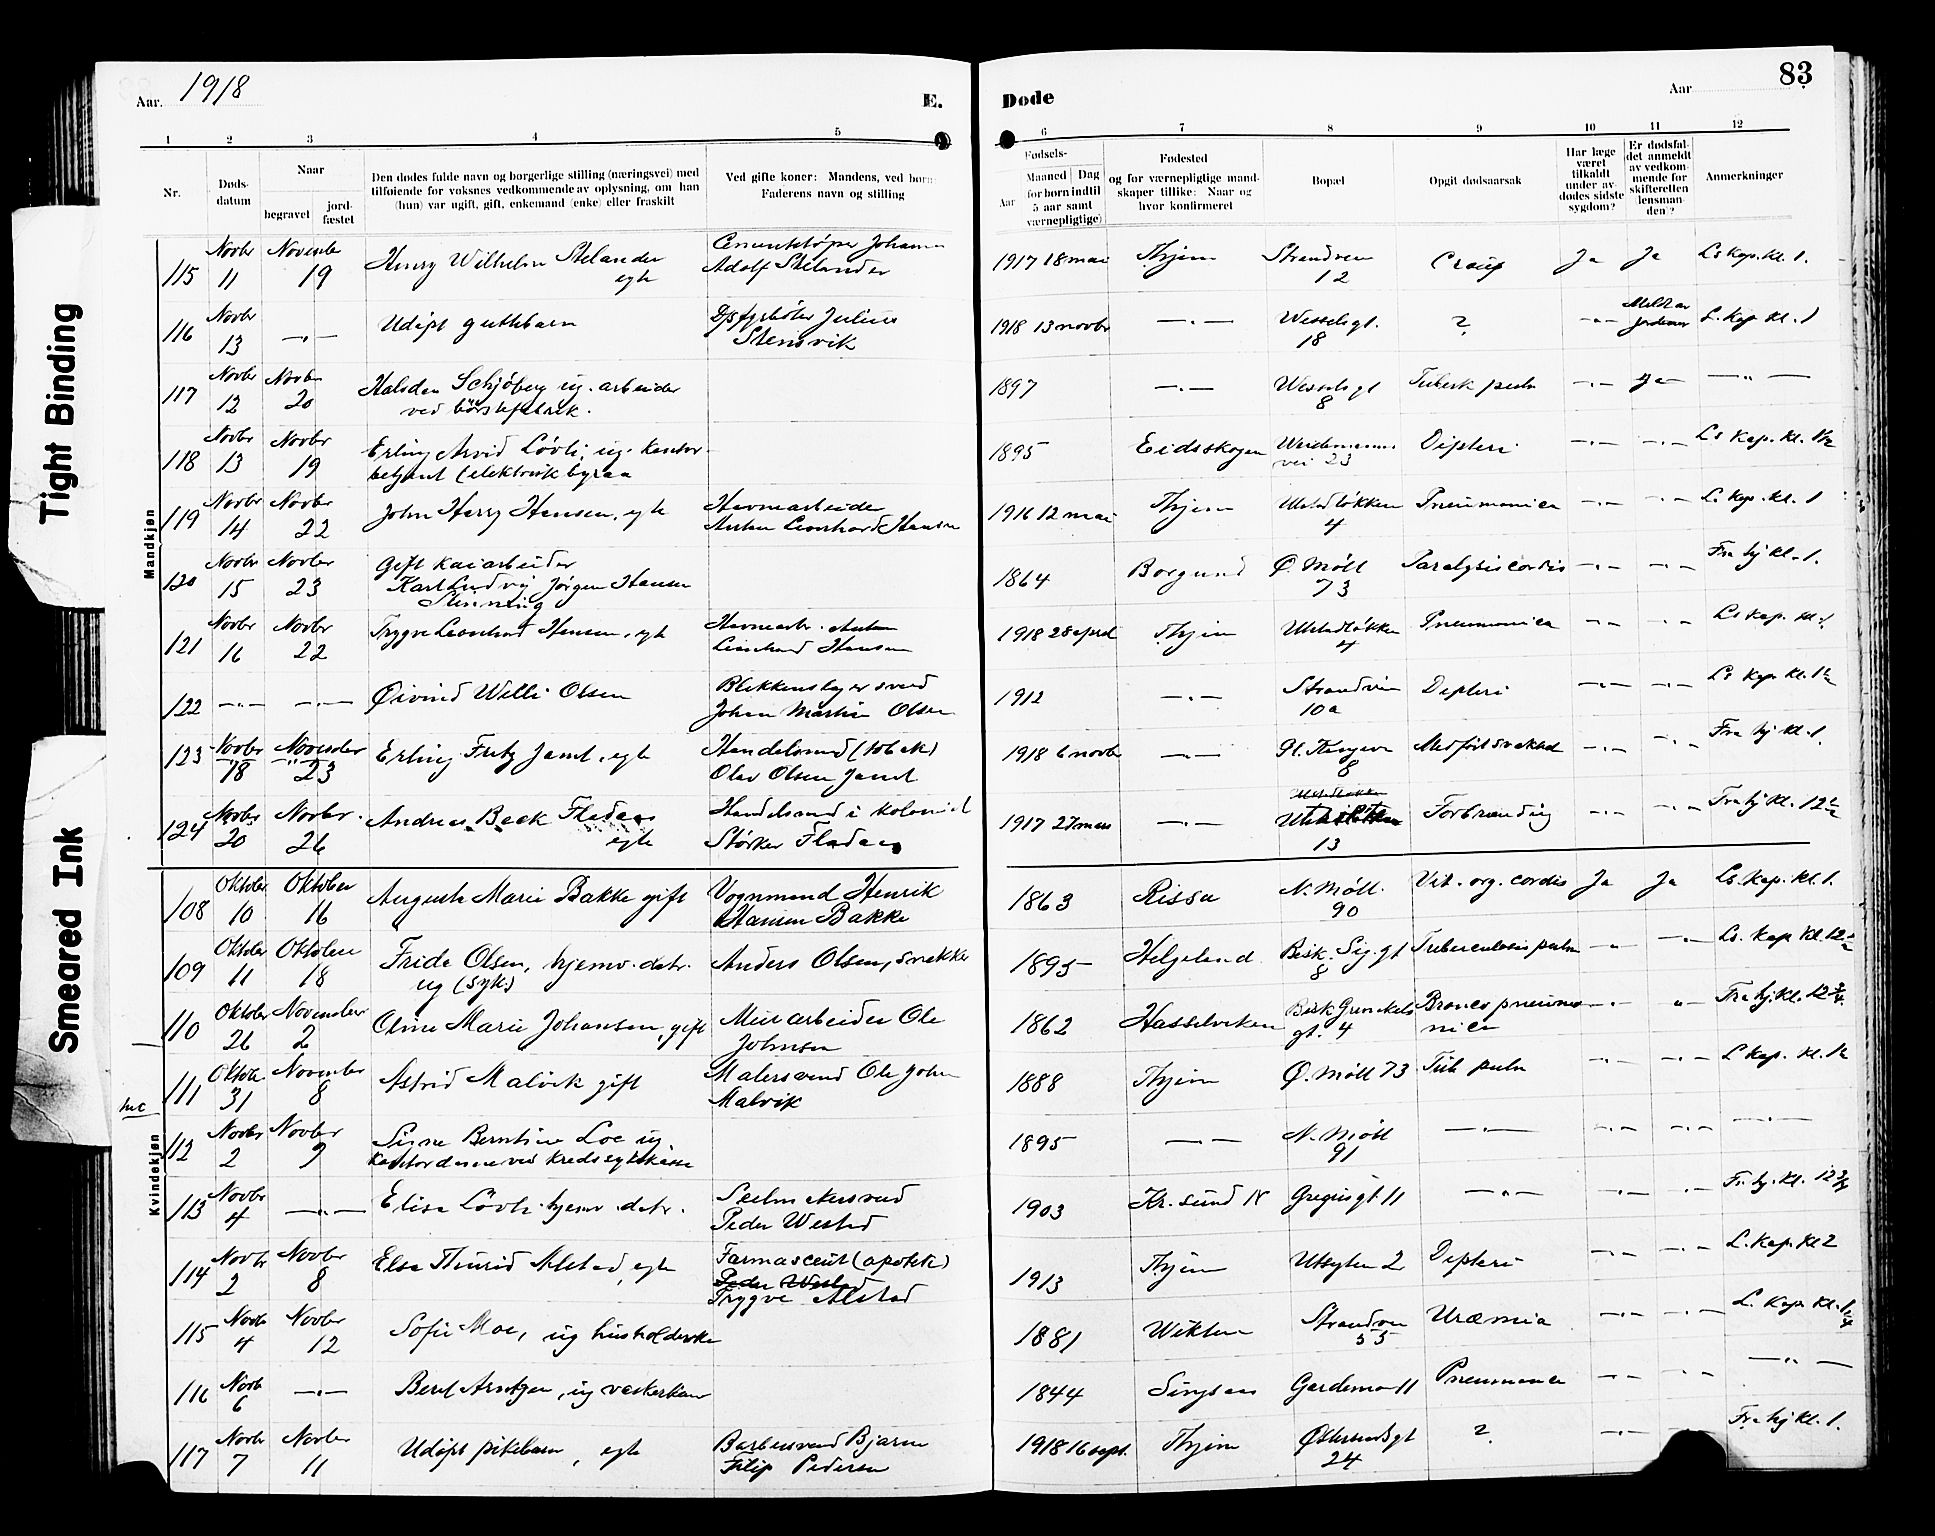 Tight Binding
Smeared Ink
Aar. 1918
E.
Døde
Aar
83
1 2 3 4 5 6 7 8 9 10 11 12
Nr.
Døds-
datum
Naar
begravet
jord-
fæstet
Den dødes fulde navn og borgerlige stilling (næringsvei) med
tilføiende for voksnes vedkommende av oplysning, om han
(hun) var ugift, gift, enkemand (enke) eller fraskilt
Ved gifte koner: Mandens, ved børn:
Faderens navn og stilling
Fødsels-
Aar
Maaned Dag
for børn indtil
5 aar samt
værnepligtige)
Fødested
og for værnepligtige mand-
skaper tillike: Naar og
hvor konfirmeret
Bopæl
Opgit dødsaarsak
Har læge
været
tilkaldt
under av-
dødes sidste
sygdom?
Er dødsfal-
det anmeldt
av vedkom-
mende for
skifteretten
(lensman-
den)?
Anmerkninger
Mandkjøn
115 Novbr 11 November 19 Henry Wilhelm Stelander egte
Adolf Stelander
1917 18 mai Thjem Strandvein 12 Croup Ja Ja Ls Kap. Kl. 1.
116 Novbr 13 —"— Udøpt guttebarn
Julius Stensvik
1918 13 novbr —"— Wesselsgt. 18 ? —"— L. Kap Kl. 1
117 Novbr 12 Novbr 20 Halvdan Schjøberg ug. arbeider
ved børstefabrik.
1897 —"— Wesselsgt 8 Tuberk pulm —"— Ja —"—
118 Novbr 13 Novbr 19 Erling Arvid Løvli, ug. kontor-
betjent (elektrisk byraa
1895 Eidsskogen Weidemanns vei 23 Difteri —"— —"— Ls Kap. Kl. 1½
119 Novbr 14 Novbr 22 John Harry Hansen, egte
Havnearbeider
Anton Leonhard Hansen
1916 12 mai Thjem Ulstadløkken 4 Pneumonica —"— —"— L. Kap. Kl. 1
120 Novbr 15 Novbr 23 Gift kaiarbeider
Karl Ludvig Jørgen Hansen
1864 Borgund Ø. Møll 73 Paralysis cordis —"— —"— Fra hj kl. 1.
121 Novbr 16 Novbr 22 Trygve Leonhard Hansen, egte
Havnearb. Anton
Leonhard Hansen
1918 28 april Thjem Ulstadløkken 4 Pneumonica —"— —"— Ls Kap. Kl. 1
122 —"— —"— Øivind Willi Olsen
Blikkenslagersvend
Johan Martin Olsen
1912 —"— Strandvein 10a Difteri —"— —"— Ls Kap. Kl. 1½
123 Novbr 18 November 23 Erling Fritz Jamt, egte
Handelsmand (tobak)
Olav Olsen Jamt
1918 6 novbr —"— 8 Medført svakhed —"— —"— Fra hj kl. 1.
124 Novbr 20 Novbr. 26 Andreas Beck Fladaas egte
Handelsmand i kolonial
Størker Fladaas
1917 27 mars —"— 13 Forbrænding —"— —"— Fra hj kl. 12½
Kvindekjøn
108 Oktober 10 Oktober 16 Augusta Marie Bakke gift
Vognmand Henrik
Hansen Bakke
1863 Rissa N. Møll. 90 Vit. org. cordis Ja Ja Ls. Kap. Kl. 1.
109 Oktober 11 Oktober 18 Frida Olsen, hjemv. datr.
ug (syk.)
Anders Olsen, snekker
1895 Helgeland Bisk. Sig. gt 8 Tuberculosis pulm —"— —"— Ls. Kap Kl. 12½
110 Oktober 26 November 2 Oline Marie Johansen, gift
Murarbeider Ole
Johnsen
1862 Hasselviken Bisk Grønkels gt. 4 Broncopneumonica —"— " Fra hj kl. 12¾
111 Oktober 31 November 8 Astrid Malvik gift
Malersvend Ole John
Malvik
1888 Thjem Ø. Møll 73 Tub pulm —"— —"— L Kap. Kl. 1½
112 Novbr 2 Novbr 9 Signe Berntine Loe ug.
Kontordame ved Kredssykekasse
1895 —"— N. Møll 91 —"— —"— —"— —"—
113 Novbr 4 —"— Elisa Løvli hjemv. datr.
Peder Westad
1903 Kr. sund N Gregusgt 11 —"— —"— —"— Fr. hj. kl. 12¾
114 Novbr 2 Novbr 8 Else Thurid Alstad, egte
Farmasceut (apotek)
Peder Westad
Trygve Alstad
1913 Thjem Utsyten 2 Difteri —"— —"— L. Kap. Kl 2
115 Novbr 4 Novbr 12 Sofie Moe, ug husholderske
1881 Strandvn 55 Uræmia —"— —"— L. Kap. Kl. 1¼
116 Novbr 6 —"— Beret Arntzen, ug vaskerkone
1844 Singsaas Gardemon 11 Pneumonica —"— —"— —"—
117 Novbr 7 Novbr 11 Udøpt pikebarn, egte
Barbersvend Bjarne
Filip Pedersen
1918 16 sept. Thjem Østersundsgt 24 ? —"— Fra hj kl. 1.